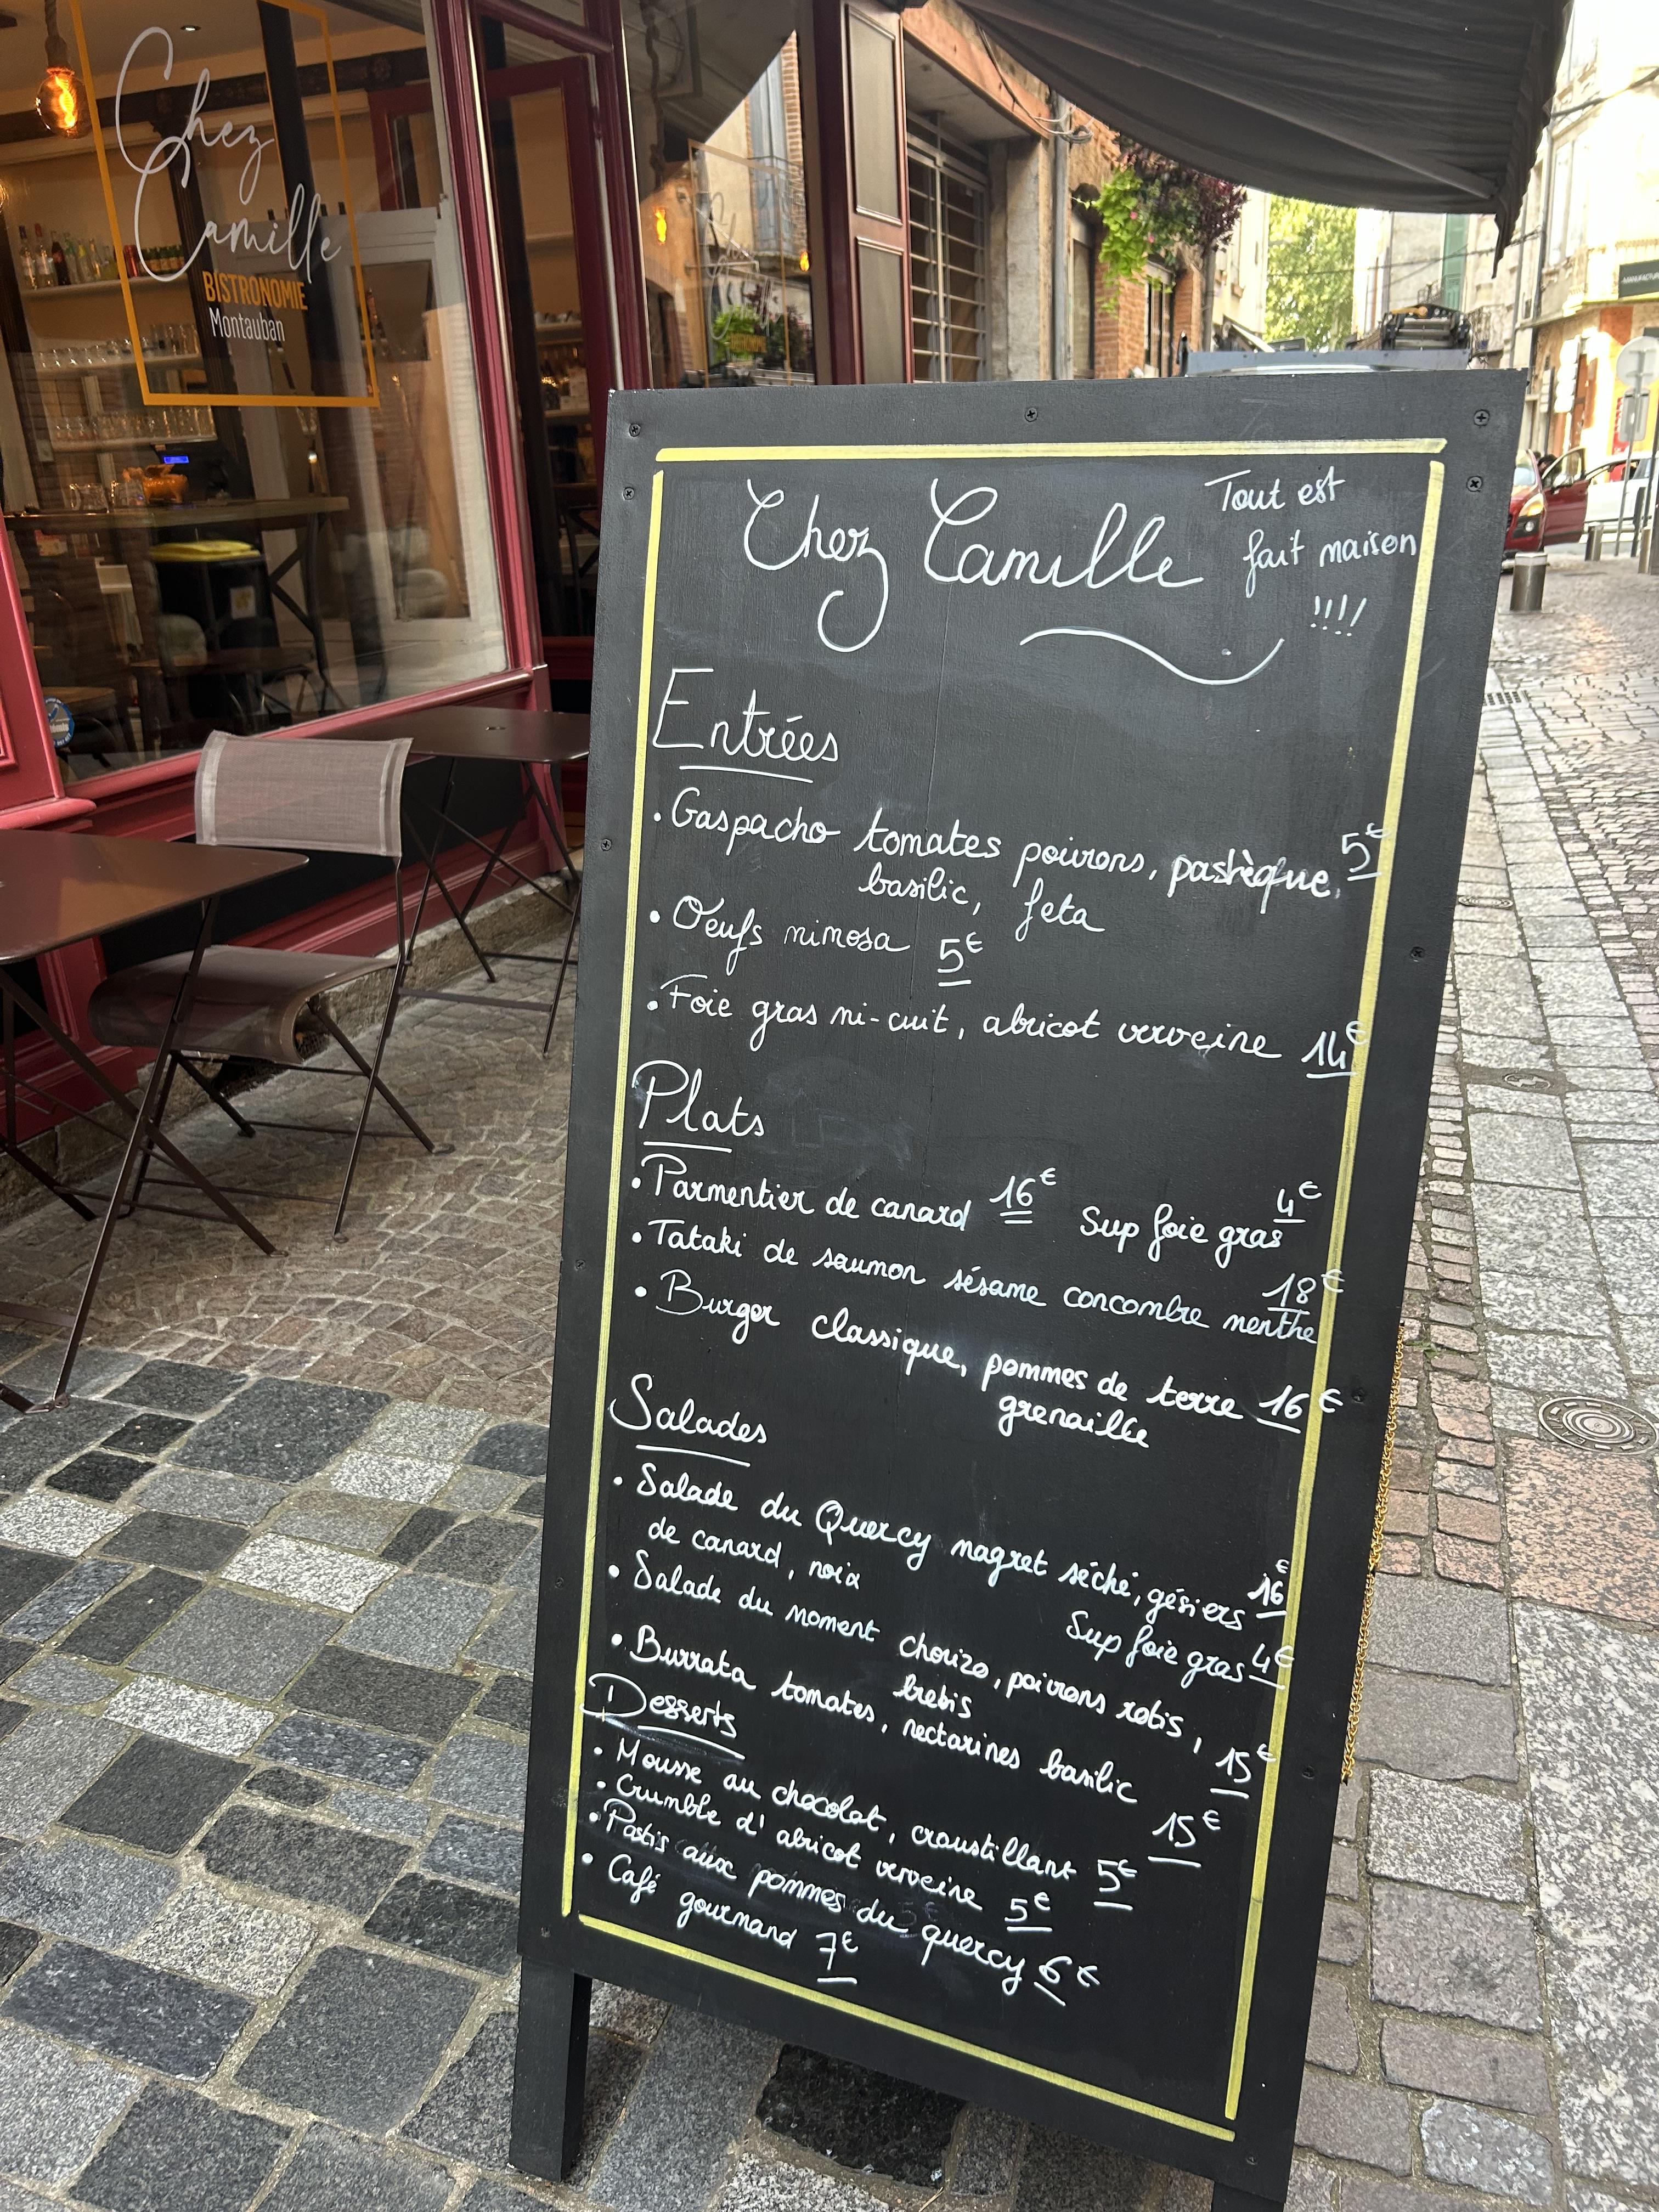 Chez
Camille
BISTRONOMIE
Montauban
Chez Camille
Tout est
fait maison
!!!!
Entrées
• Gaspacho tomates poivrons, pastèque, 5€
basilic, feta
• Oeufs mimosa 5€
• Foie gras mi-cuit, abricot verveine 14€
Plats
• Parmentier de canard 16€ Sup foie gras 4€
• Tataki de saumon sésame concombre menthe 18€
• Burger classique, pommes de terre 16€
grenaille
Salades
• Salade du Quercy magret séché, gésiers 16€
de canard, noix
Sup foie gras 4€
• Salade du moment chorizo, poivrons rotis,
brebis 15€
• Burrata tomates, nectarines basilic 15€
Desserts
• Mousse au chocolat, croustillant 5€
• Crumble d'abricot verveine 5€
• Pastis aux pommes du quercy 6€
• Café gourmand 7€